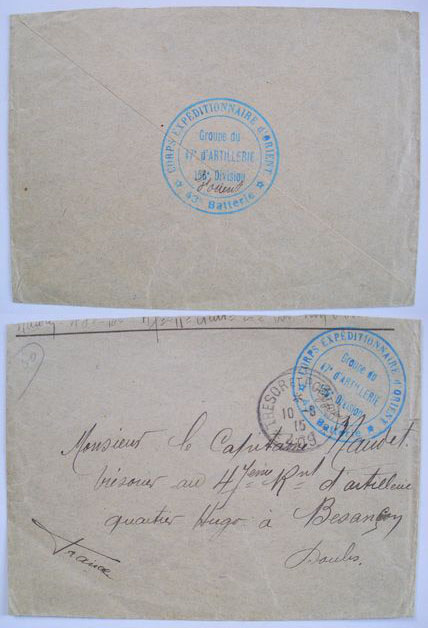 CORPS EXPÉDITIONNAIRE d'ORIENT
Groupe du
47e d'ARTILLERIE
156e Division
d'orient
43e Batterie
CORPS EXPÉDITIONNAIRE d'ORIENT
Groupe du
47e d'ARTILLERIE
Division
Batterie
TRESOR ET
10 - 8
15
Monsieur le Capitaine Naudet
trésorier au 47eme Rnt d'artillerie
quartier Hugo à Besançon
Doubs
France